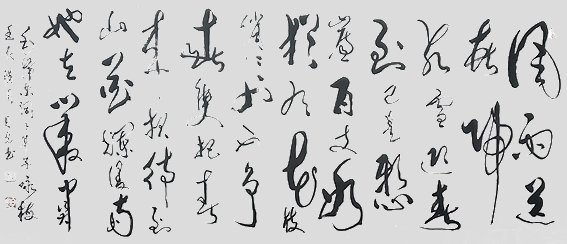 風雨送
春歸
飛雪迎春
到已是懸
崖百丈冰
猶有花枝
俏俏也不争
春只把春
来报待到
山花爛漫时
她在丛中笑
毛泽东词卜算子咏梅